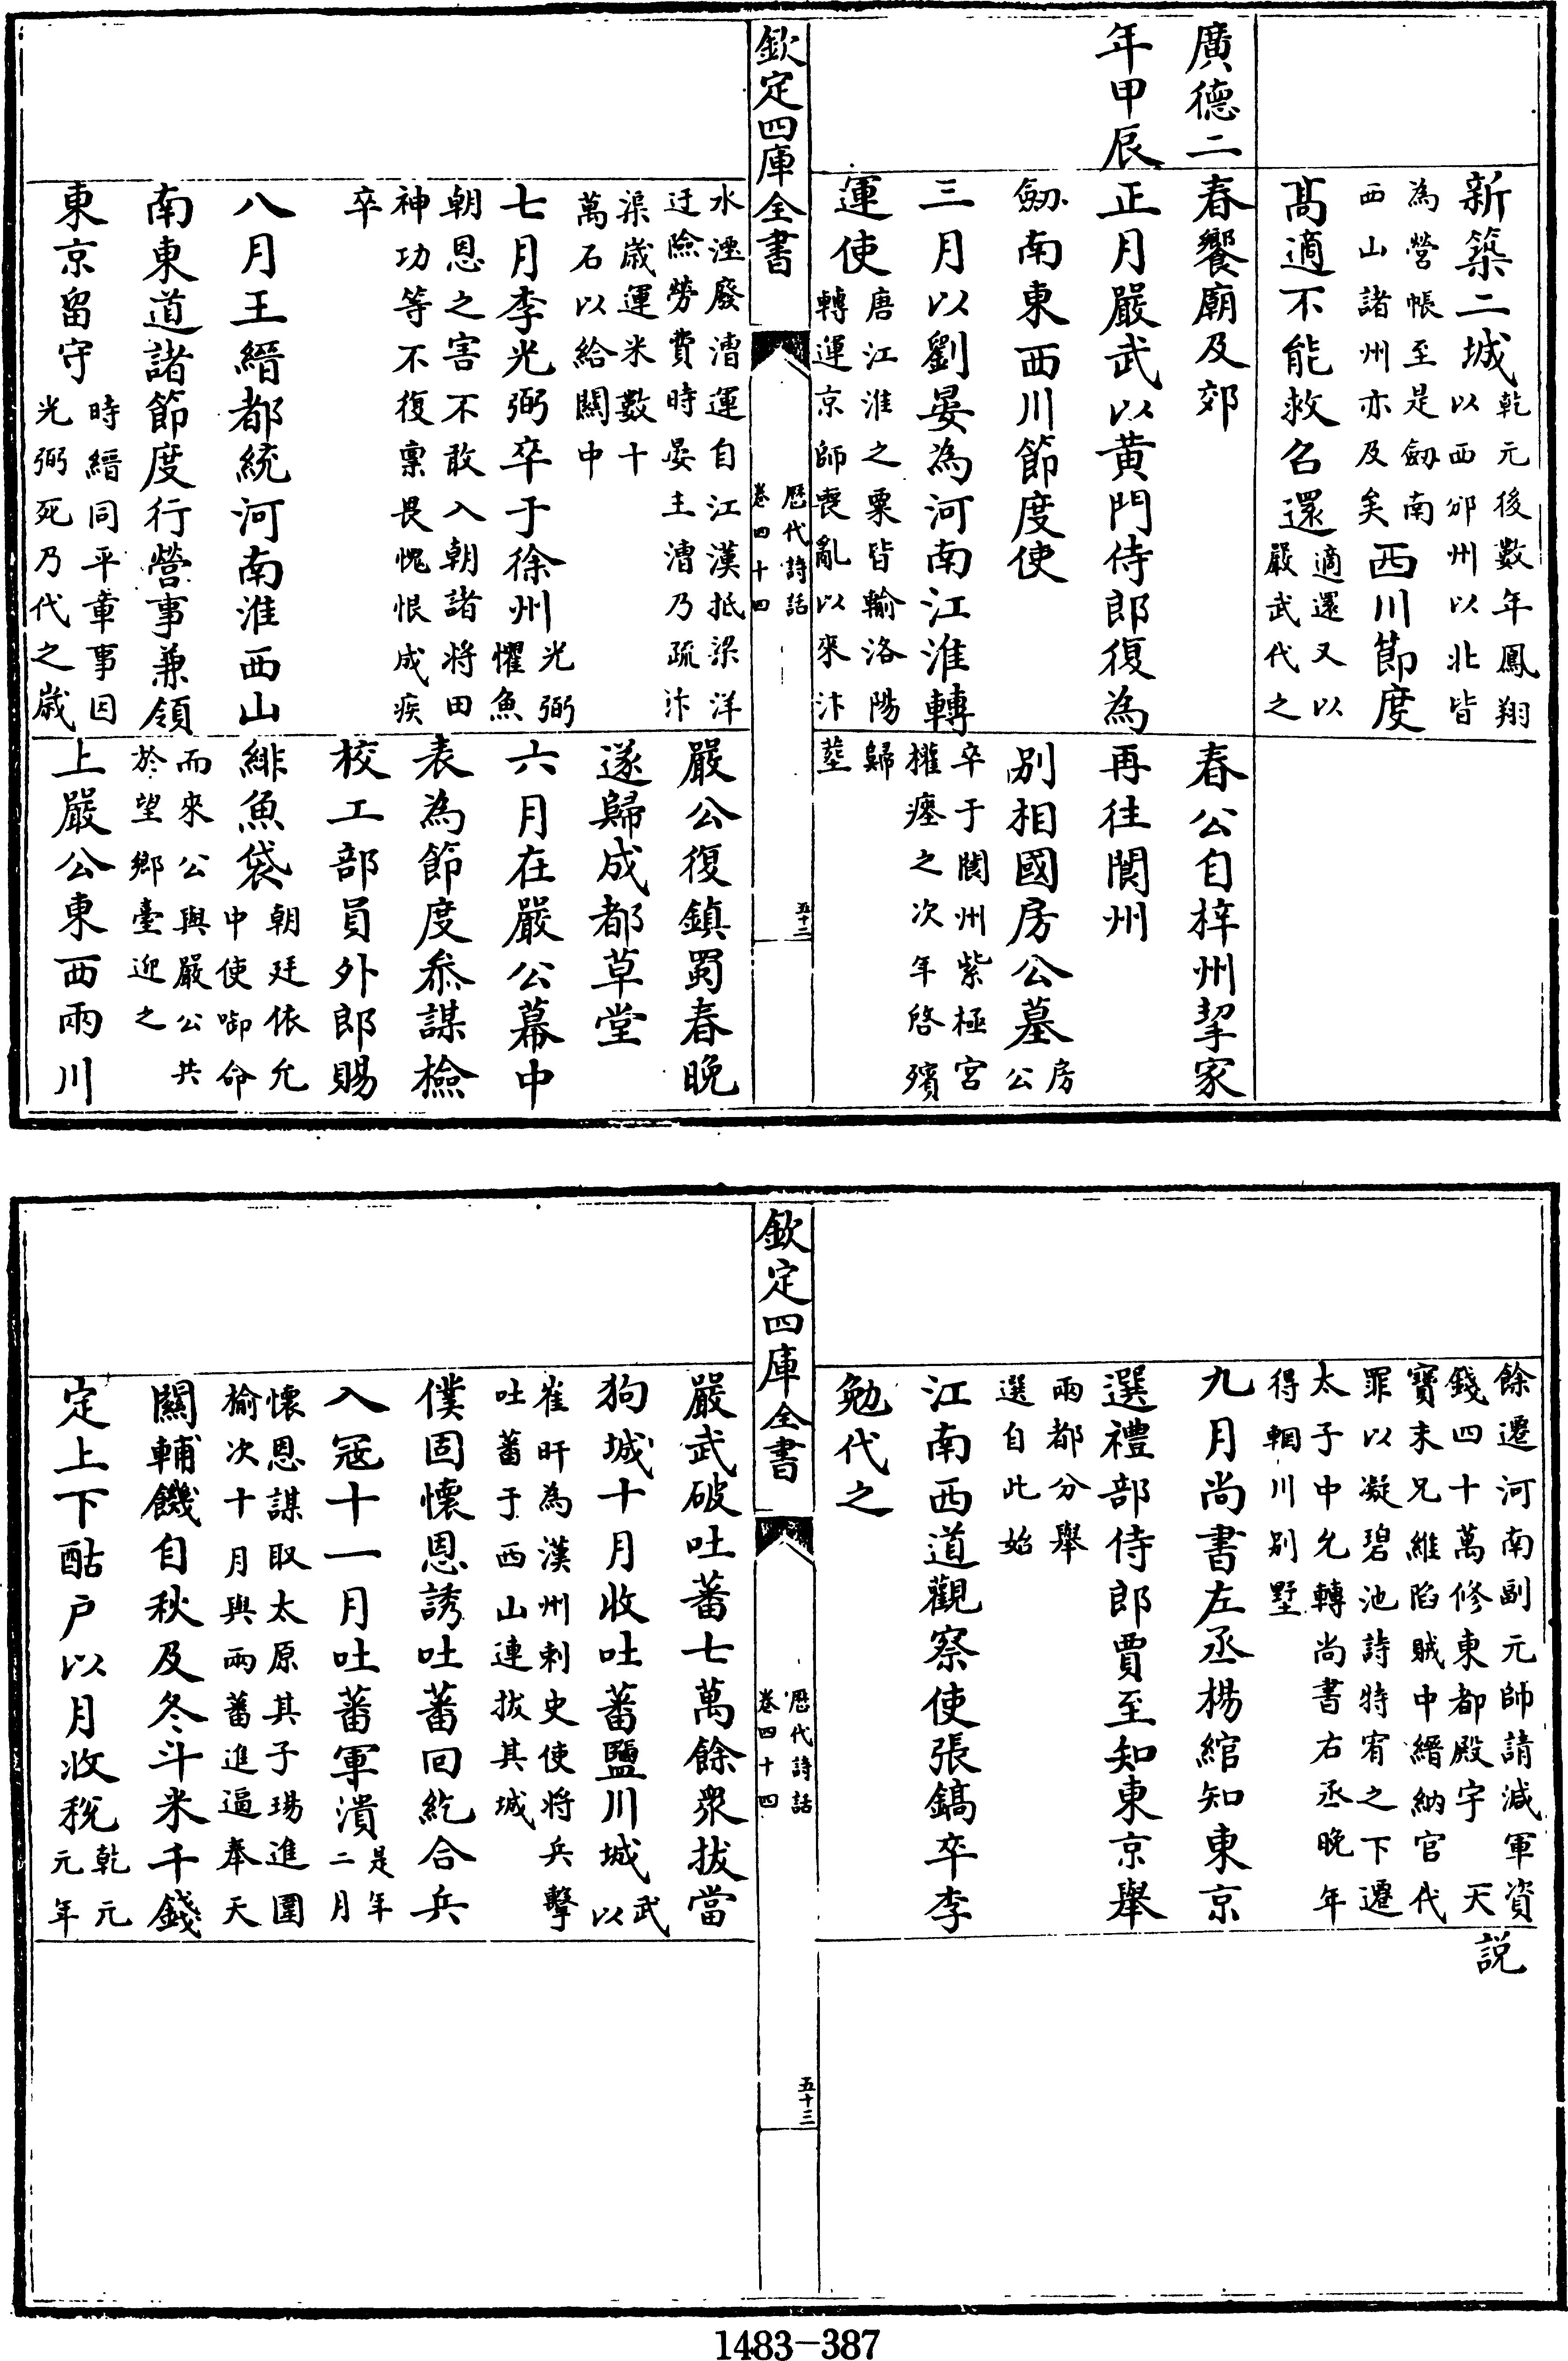 新築二城
乾元後數年鳳翔
以西邠州以北皆
為營帳至是劔南
西山諸州亦及矣
西川節度
高適不能救召還
適還又以
嚴武代之
廣德二
春饗廟及郊
春公自梓州挈家
年甲辰
正月嚴武以黄門侍郎復為
再往閬州
劔南東西川節度使
别相國房公墓
房
公
三月以劉晏為河南江淮轉
卒于閬州紫極宫
權瘞之次年啓殯
運使
唐江淮之粟皆輸洛陽
轉運京師喪亂以來汴
歸
塟
欽定四庫全書
歷代詩話
卷四十四
五十二
水湮廢漕運自江漢抵梁洋
迂險勞費時晏主漕乃疏汴
嚴公復鎮蜀春晚
渠歲運米數十
萬石以給關中
遂歸成都草堂
七月李光弼卒于徐州
光弼
懼魚
六月在嚴公幕中
朝恩之害不敢入朝諸將田
神功等不復稟畏愧恨成疾
表為節度叅謀檢
卒
校工部員外郎賜
八月王縉都統河南淮西山
緋魚袋
朝廷依允
中使啣命
南東道諸節度行營事兼領
而來公與嚴公共
於望鄉臺迎之
東京留守
時縉同平章事因
光弼死乃代之歲
上嚴公東西兩川
餘遷河南副元帥請減軍資
錢四十萬修東都殿宇 天
說
寶末兄維陷賊中縉納官代
罪以凝碧池詩特宥之下遷
太子中允轉尚書右丞晚年
得輞川别墅
九月尚書左丞楊綰知東京
選禮部侍郎賈至知東京舉
兩都分舉
選自此始
江南西道觀察使張鎬卒李
勉代之
欽定四庫全書
歷代詩話
卷四十四
五十三
嚴武破吐蕃七萬餘衆拔當
狗城十月收吐蕃鹽川城
武
以
崔旰為漢州刺史使將兵擊
吐蕃于西山連拔其城
僕固懷恩誘吐蕃回紇合兵
入冦十一月吐蕃軍潰
是年
二月
懷恩謀取太原其子瑒進圍
榆次十月與兩蕃進逼奉天
關輔饑自秋及冬斗米千錢
定上下酤戸以月收稅
乾元
元年
1483-387